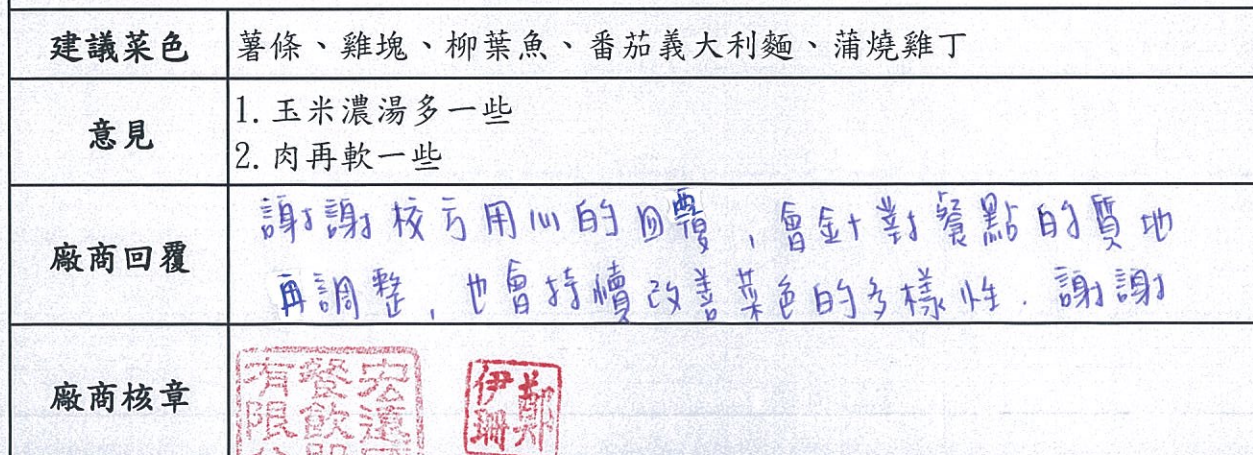 建議菜色 薯條、雞塊、柳葉魚、番茄義大利麵、蒲燒雞丁
意見
1. 玉米濃湯多一些
2. 肉再軟一些
廠商回覆
謝謝校方用心的回覆，會針對餐點的質地
再調整，也會持續改善菜色的多樣性．謝謝
廠商核章
宏遠
餐飲
有限
鄭
伊珊